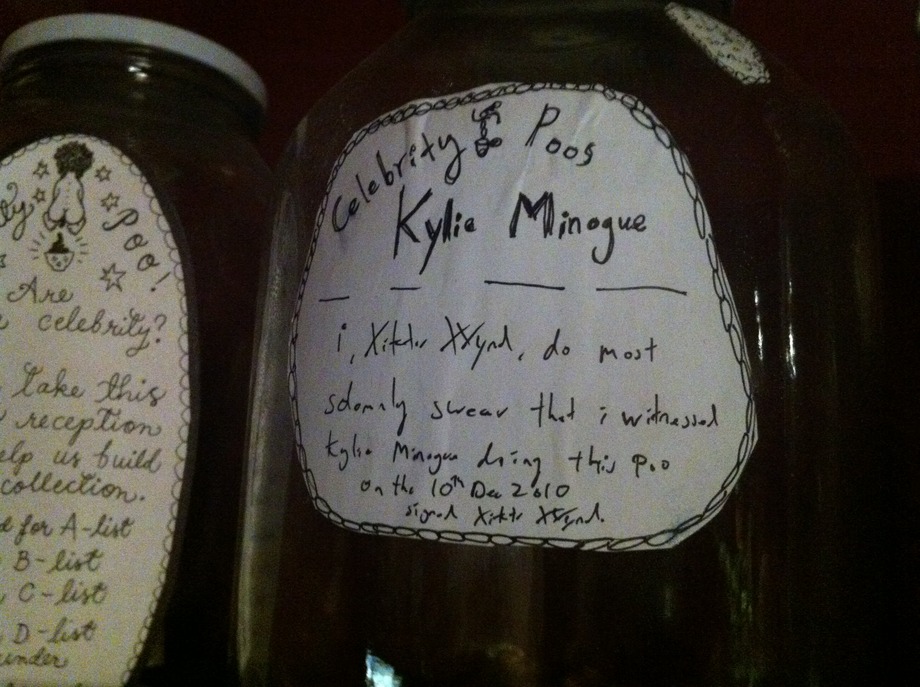 Poo!
Are
celebrity?
Take this
reception
help us build
collection.
for A-list
B-list
C-list
D-list
under
Celebrity Poos
Kylie Minogue
i, Viktor Wynd, do most
solomnly swear that i witnessed
Kylie Minogue doing this poo
on the 10th Dec 2010
signed Viktor Wynd.